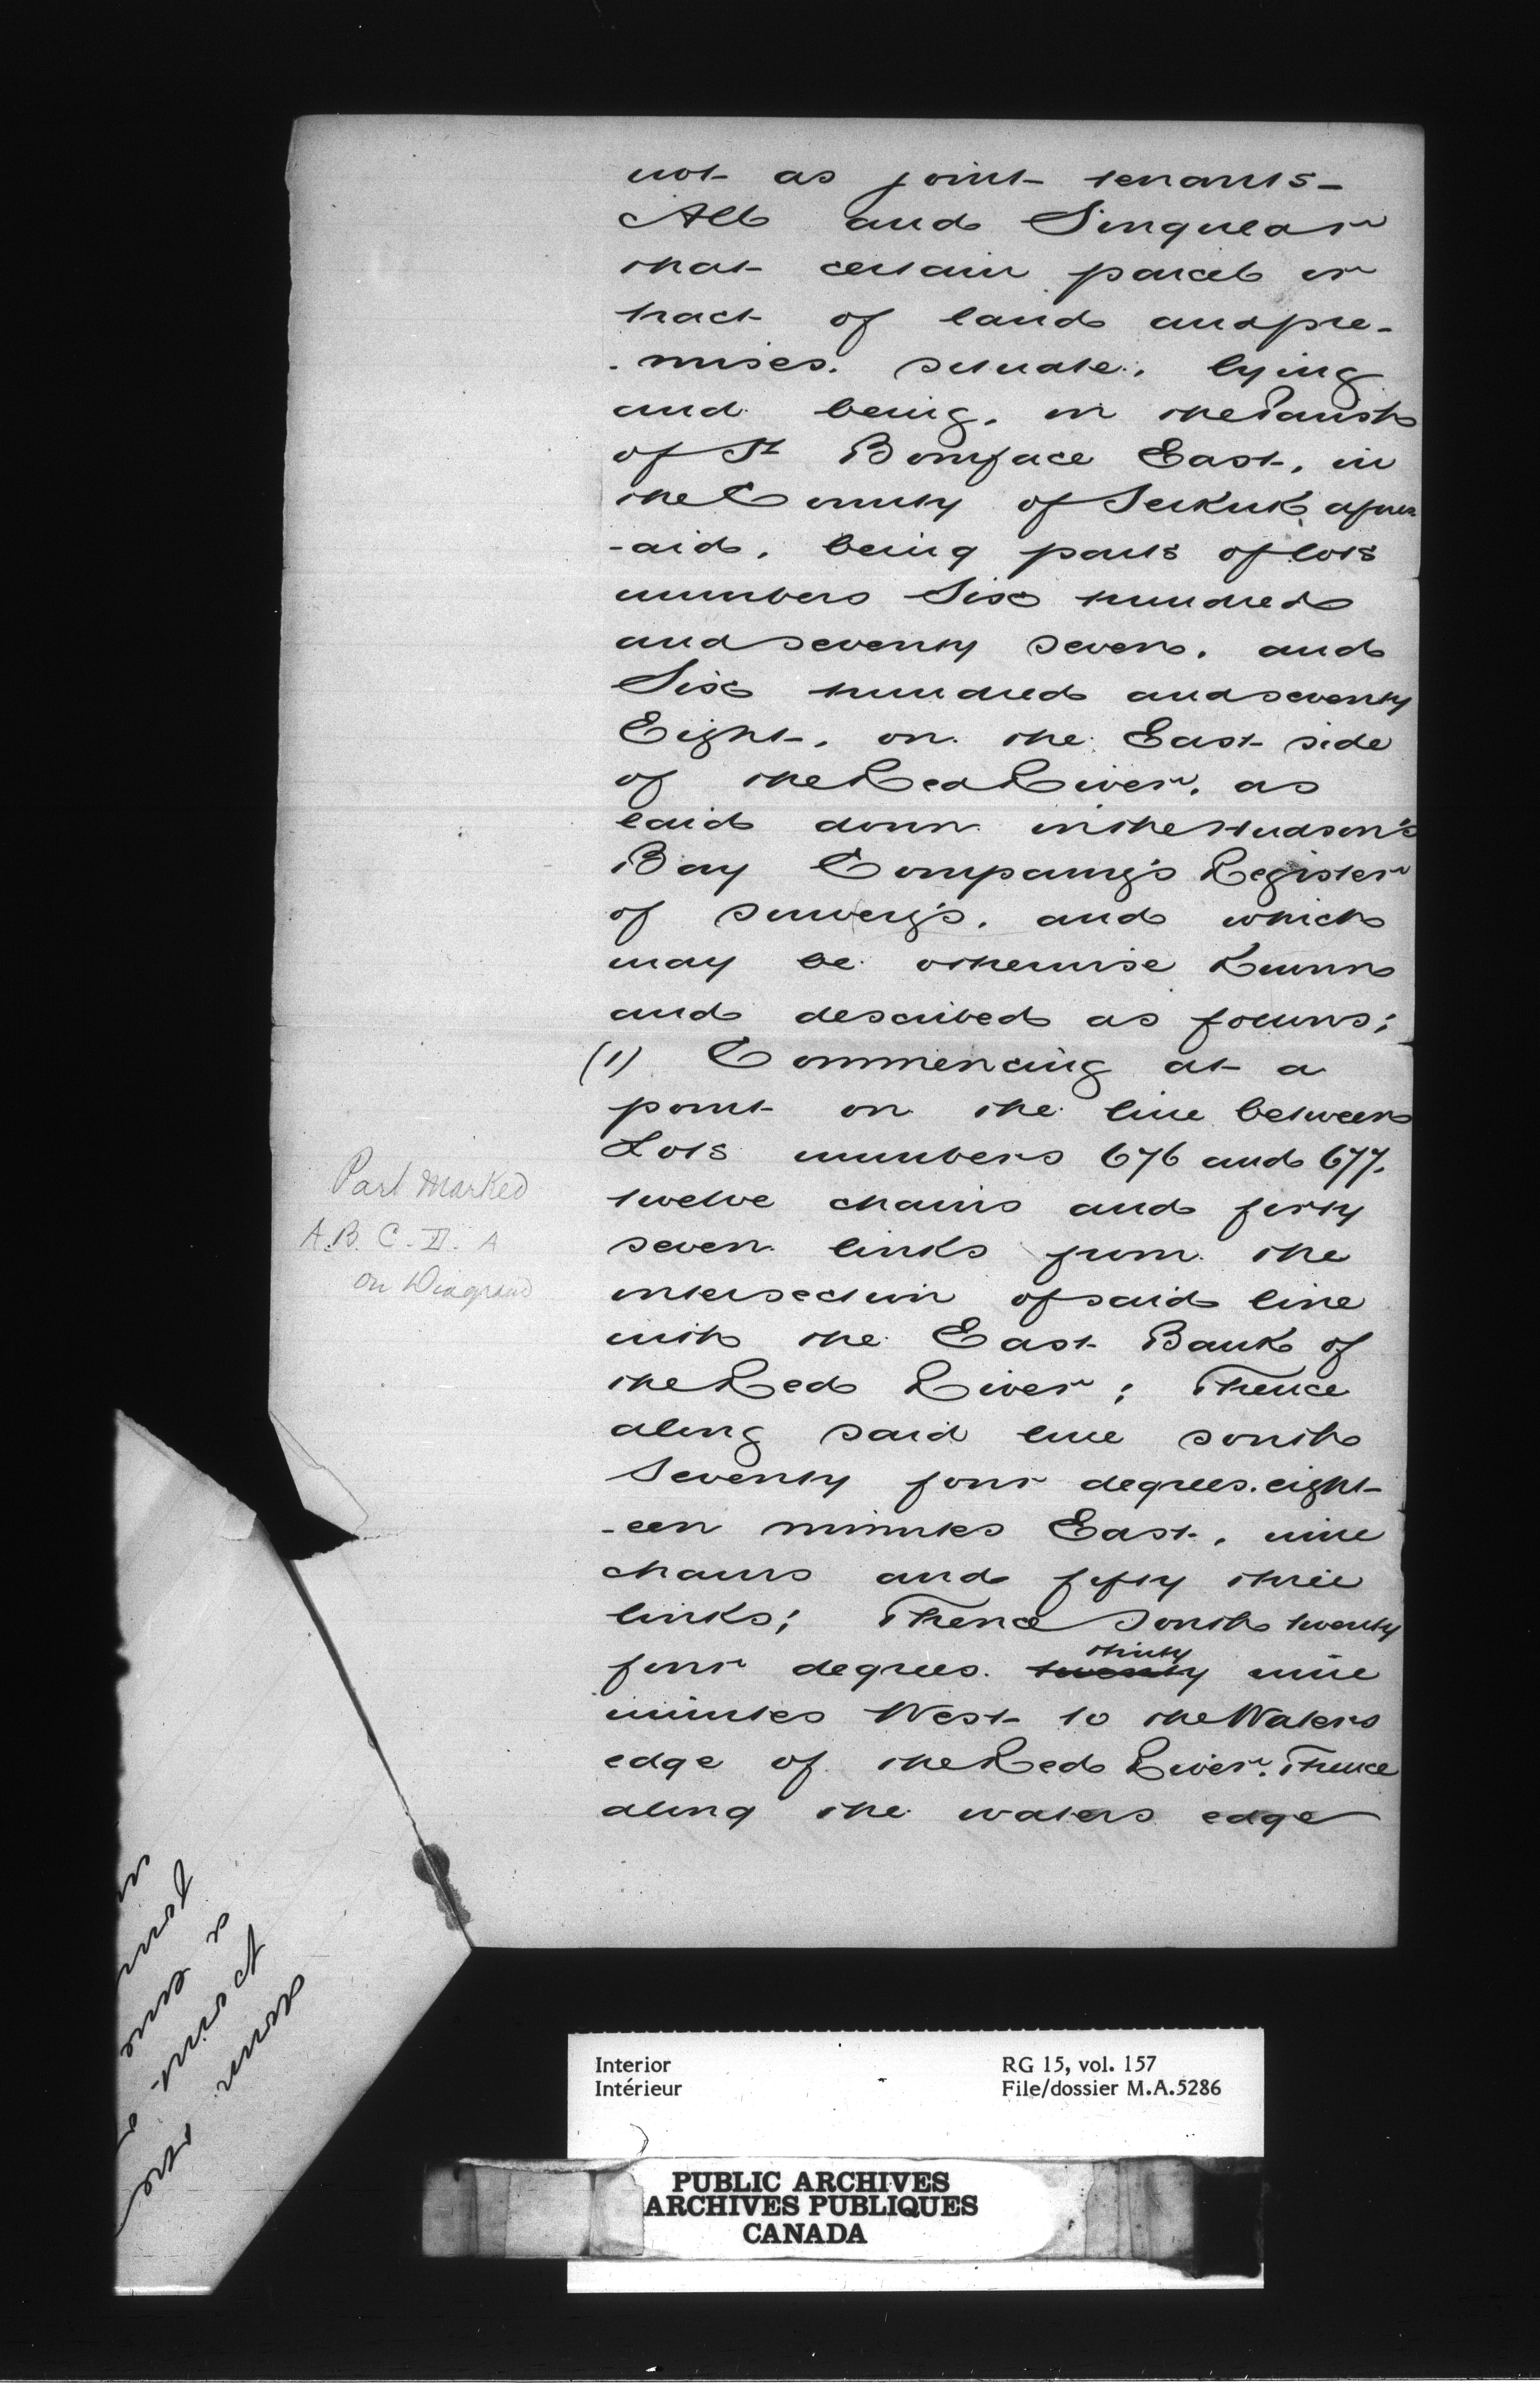 not as joint tenants-
All and Singular
that certain parcel or
tract of land and pre-
-mises. situate, lying
and being, in the Parish
of St Boniface East, in
the County of Selkirk afores
-aid, being parts of lots
numbers Six hundred
and seventy seven, and
Six hundred and seventy
Eight, on the East side
of the Red River, as
laid down in the Hudson's
Bay Company's Register
of survey's, and which
may be otherwise Known
and described as follows;
(1) Commencing at a
point on the line between
Lots numbers 676 and 677,
twelve chains and forty
seven links from the
intersection of said line
with the East Bank of
the Red River; Thence
along said line South
Seventy four degrees. eight-
-een minutes East, nine
chains and fifty three
links; Thence South twenty
four degrees. twenty thirty nine
minutes West to the Waters
edge of the Red River. Thence
along the waters edge
Part Marked
A. B. C. D. A
on Diagram
Interior
Intérieur
RG 15, vol. 157
File/dossier M.A.5286
PUBLIC ARCHIVES
ARCHIVES PUBLIQUES
CANADA